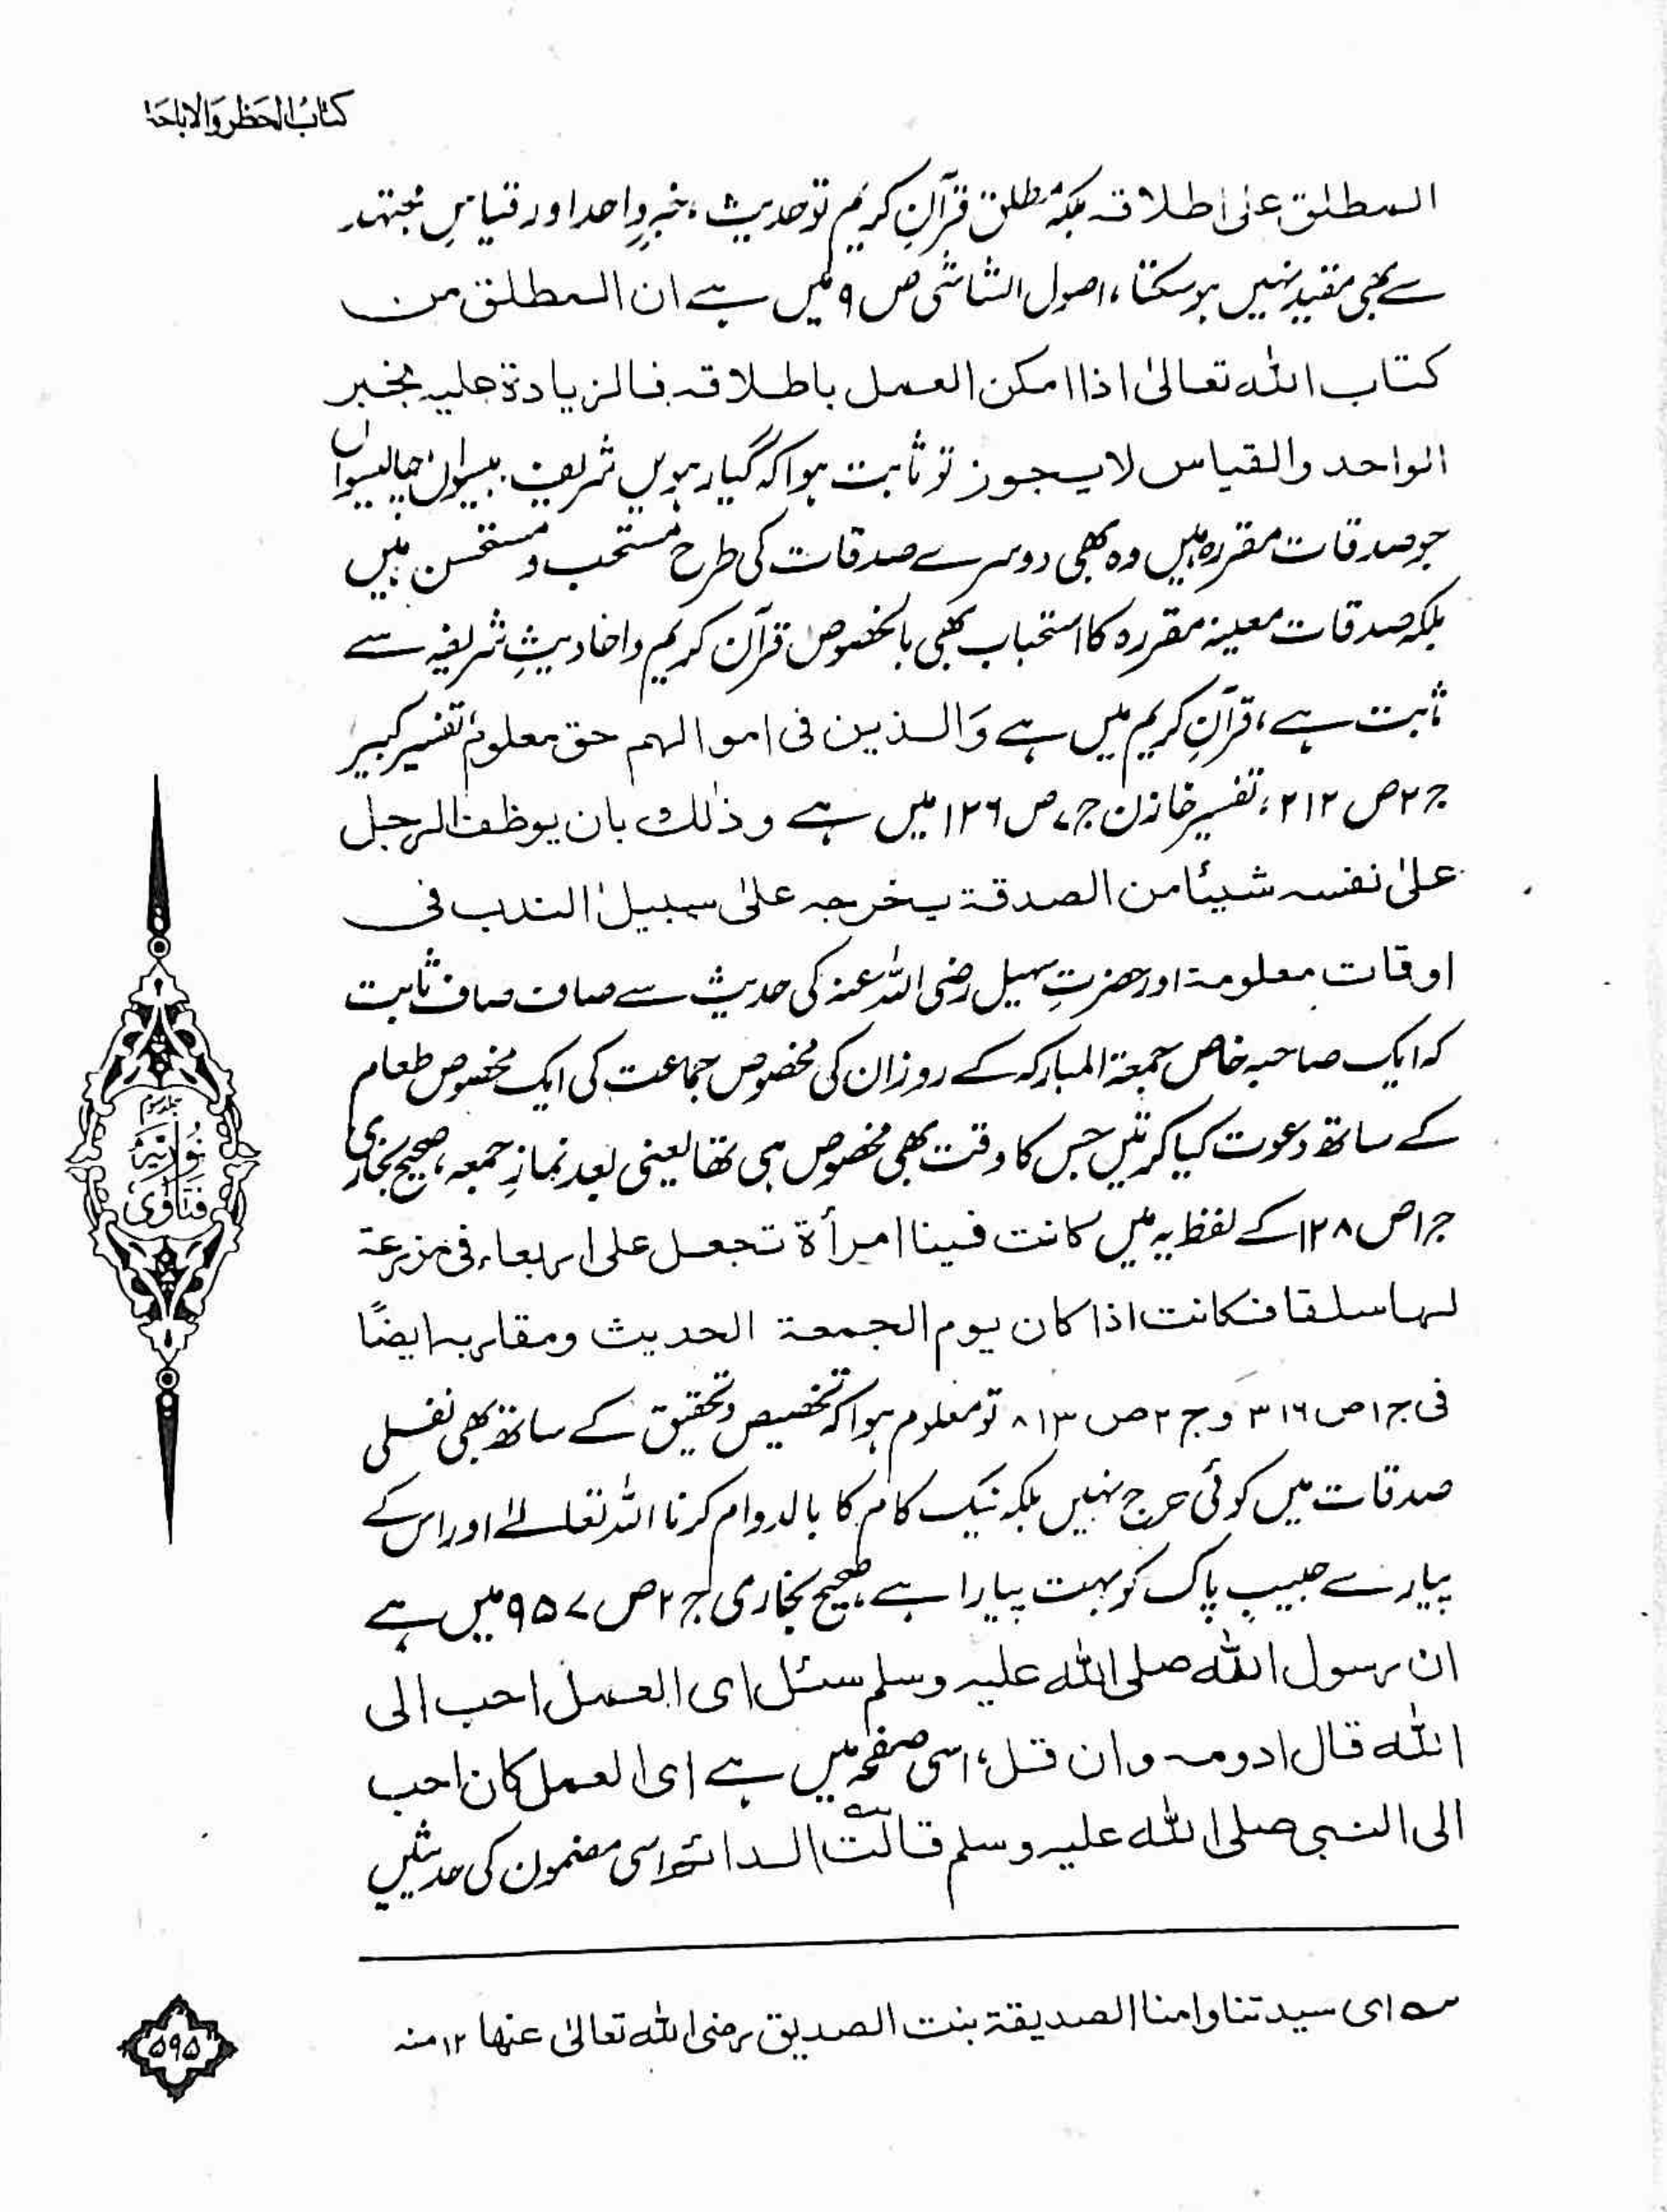 کتابُ الحَظر وَالاباحَۃ
المطلق علیٰ اطلاقہ بلکہ مُطلق قرآنِ کریم تو حدیث، خبرِ واحد اور قیاسِ مُجتہد
سے بھی مقید نہیں ہو سکتا، اصول الشاشی ص ۹ میں ہے ان المطلق من
کتاب اللہ تعالیٰ اذا امکن العمل باطلاقہ فالزیادۃ علیہ بخبر
الواحد والقیاس لایجوز تو ثابت ہوا کہ گیارہویں شریف، بیسواں، چالیسواں
جو صدقات مقررہ ہیں وہ بھی دوسرے صدقات کی طرح مستحب و مستحسن ہیں
بلکہ صدقات معینہ مقررہ کا استحباب بھی بالخصوص قرآن کریم و احادیثِ شریفہ سے
ثابت ہے، قرآنِ کریم میں ہے وَالذین فی اموالہم حق معلوم، تفسیر کبیر
ج ۲ ص ۲۱۲، تفسیر خازن ج ۷ ص ۱۲۶ میں ہے وذٰلک بان یوظف الرجل
علیٰ نفسہ شیئا من الصدقۃ یخرجہ علیٰ سبیل الندب فی
اوقات معلومۃ اور حضرتِ سہیل رضی اللہ عنہ کی حدیث سے صاف صاف ثابت
کہ ایک صاحبہ خاص جمعۃ المبارکہ کے روز ان کی مخصوص جماعت کی ایک مخصوص طعام
کے ساتھ دعوت کیا کرتیں جس کا وقت بھی مخصوص ہی تھا یعنی بعد نمازِ جمعہ، صحیح بخاری
ج ۱ ص ۱۲۸ کے لفظ یہ ہیں کانت فینا امرأۃ تجعل علی اربعاء فی مزرعۃ
لہا سلقا فکانت اذا کان یوم الجمعۃ الحدیث ومقاربہ ایضًا
فی ج ۱ ص ۳۱۶ و ج ۲ ص ۸۱۳ تو معلوم ہوا کہ تخصیص و تحقیق کے ساتھ بھی نفلی
صدقات میں کوئی حرج نہیں بلکہ نیک کام کا بالدوام کرنا اللہ تعالےٰ اور اس کے
پیارے حبیبِ پاک کو بہت پیارا ہے، صحیح بخاری ج ۲ ص ۹۵۷ میں ہے
ان رسول اللہ صلی اللہ علیہ وسلم سئل ای العمل احب الی
اللہ قال ادومہ وان قل، اسی صفحہ میں ہے ای العمل کان احب
الی النبی صلی اللہ علیہ وسلم قالت الدائم اسی مضمون کی حدیثیں
ای سیدتنا وامنا الصدیقۃ بنت الصدیق رضی اللہ تعالیٰ عنہا ۱۲ منہ
جلد سوم
نُورِیَّہ
فَتَاوٰی
۵۹۵